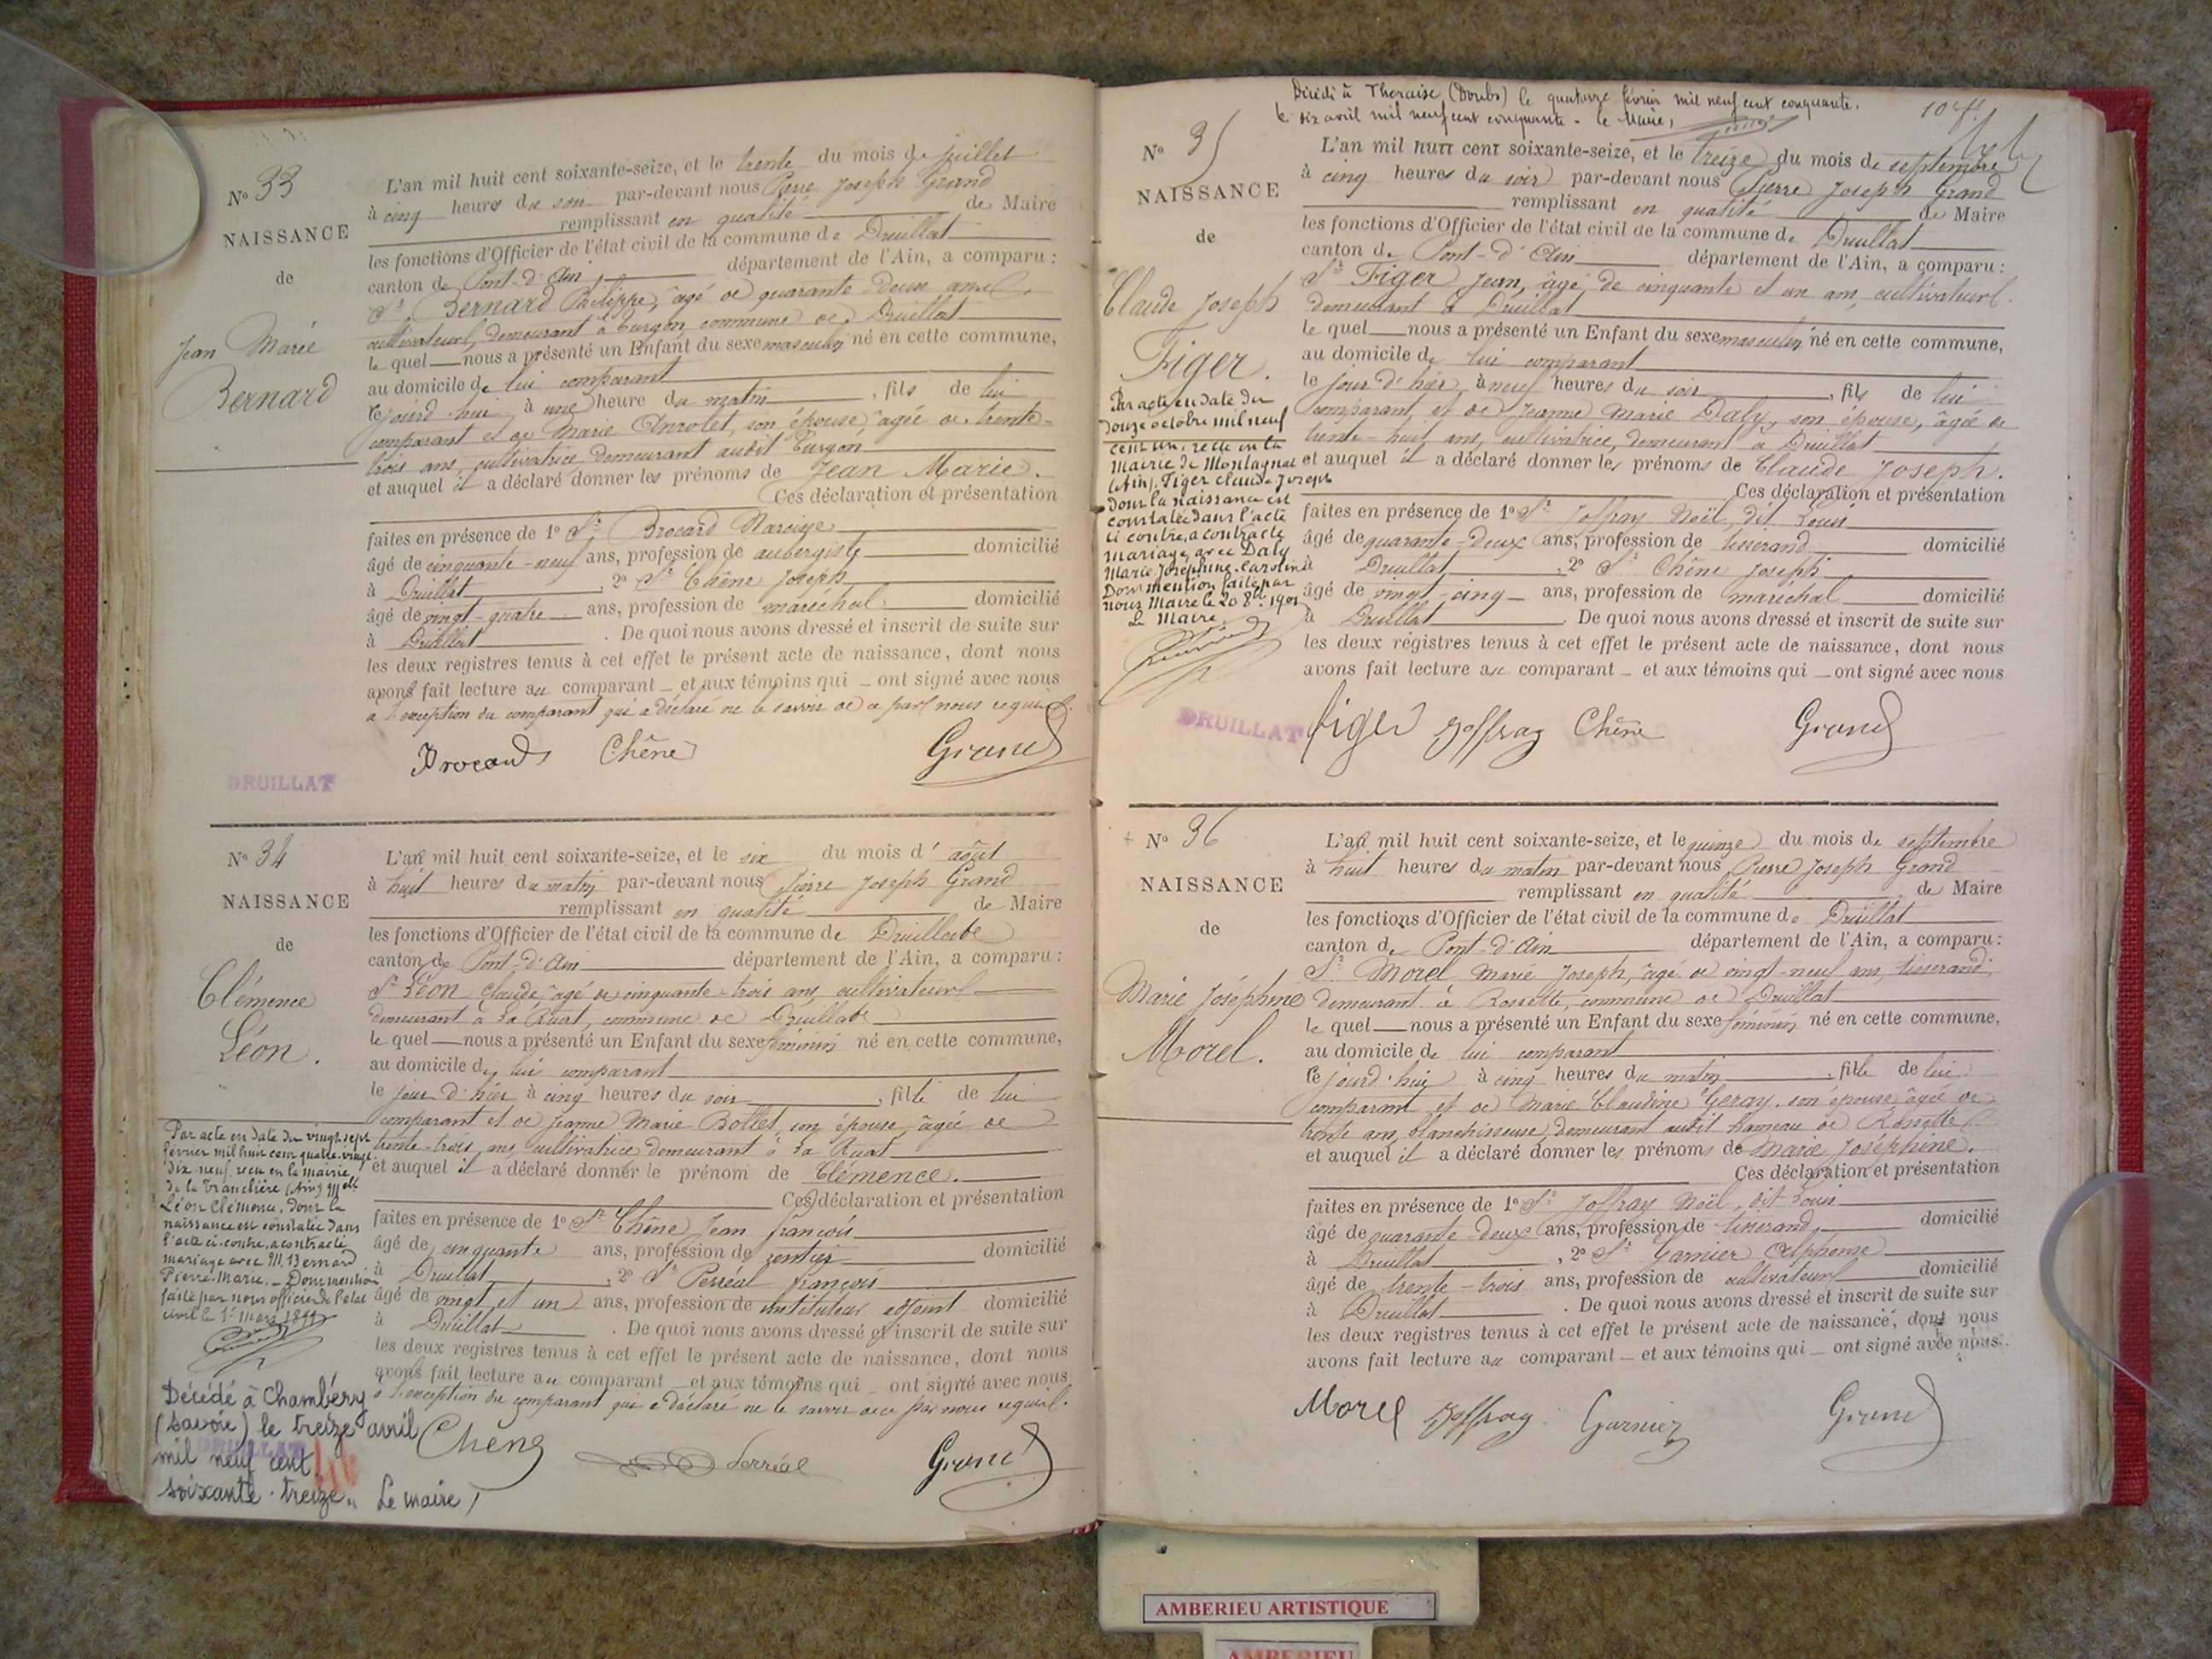 N° 33
NAISSANCE
de
Jean Marie
Bernard
L'an mil huit cent soixante-seize, et le trente du mois de juillet
à cinq heures du soir par-devant nous Pierre Joseph Grand
remplissant en qualité de Maire
les fonctions d'Officier de l'état civil de la commune de Druillat
canton de Pont-d'Ain département de l'Ain, a comparu :
Sr Bernard Philippe, âgé de quarante deux ans
cultivateur, demeurant à Turgon, commune de Druillat
le quel nous a présenté un Enfant du sexe masculin né en cette commune,
au domicile de lui comparant
ce jourd'hui à une heure du matin, fils de lui
comparant et de Marie son épouse âgée de trente-
trois ans, cultivatrice demeurant audit Turgon
et auquel il a déclaré donner les prénoms de Jean Marie.
Ces déclaration et présentation
faites en présence de 1° Sr Brocard Narcisse
âgé de cinquante-neuf ans, profession de aubergiste domicilié
à Druillat, 2° Sr Chêne Joseph
âgé de vingt-quatre ans, profession de maréchal domicilié
à Druillat. De quoi nous avons dressé et inscrit de suite sur
les deux registres tenus à cet effet le présent acte de naissance, dont nous
avons fait lecture au comparant et aux témoins qui ont signé avec nous
à l'exception du comparant qui a déclaré ne le savoir de ce par nous requis.
Brocard Chêne Grand
DRUILLAT
N° 34
NAISSANCE
de
Clémence
Léon.
L'an mil huit cent soixante-seize, et le six du mois d'août
à huit heures du matin par-devant nous Pierre Joseph Grand
remplissant en qualité de Maire
les fonctions d'Officier de l'état civil de la commune de Druillat
canton de Pont-d'Ain département de l'Ain, a comparu :
Sr Léon Claude, âgé de cinquante-trois ans, cultivateur
demeurant à La Ruat, commune de Druillat
le quel nous a présenté un Enfant du sexe féminin né en cette commune,
au domicile de lui comparant
le jour d'hier à cinq heures du soir, fille de lui
comparant et de Jeanne Marie Bottet, son épouse, âgée de
trente-trois ans, cultivatrice demeurant à La Ruat
et auquel il a déclaré donner le prénom de Clémence.
Ces déclaration et présentation
faites en présence de 1° Sr Chêne Jean François
âgé de cinquante ans, profession de rentier domicilié
à Druillat, 2° Sr Perréal François
âgé de vingt et un ans, profession de instituteur adjoint domicilié
à Druillat. De quoi nous avons dressé et inscrit de suite sur
les deux registres tenus à cet effet le présent acte de naissance, dont nous
avons fait lecture au comparant et aux témoins qui ont signé avec nous
à l'exception du comparant qui a déclaré ne le savoir de ce par nous requis.
Chêne Perréal Grand
Par acte en date du vingt-sept
février mil huit cent quatre-vingt-
dix neuf, reçu en la mairie
de la Tranclière (Ain) Melle
Léon Clémence, dont la
naissance est constatée dans
l'acte ci-contre, a contracté
mariage avec M. Bernard
Pierre-Marie. - Dont mention
faite par nous officier de l'état
civil le 1er mars 1899
Décédé à Chambéry
(Savoie) le treize avril
mil neuf cent
soixante-treize. Le maire,
DRUILLAT
Décédé à Thoraise (Doubs) le quatorze février mil neuf cent cinquante.
Le dix avril mil neuf cent cinquante - le Maire,
N° 35
NAISSANCE
de
Claude Joseph
Figer.
L'an mil huit cent soixante-seize, et le treize du mois de septembre
à cinq heures du soir par-devant nous Pierre Joseph Grand
remplissant en qualité de Maire
les fonctions d'Officier de l'état civil de la commune de Druillat
canton de Pont-d'Ain département de l'Ain, a comparu :
Sr Figer Jean, âgé de cinquante et un ans, cultivateur
demeurant à Druillat
le quel nous a présenté un Enfant du sexe masculin né en cette commune,
au domicile de lui comparant
le jour d'hier, à neuf heures du soir, fils de lui
comparant, et de Jeanne Marie Daly, son épouse, âgée de
trente-huit ans, cultivatrice, demeurant à Druillat
et auquel il a déclaré donner les prénoms de Claude Joseph.
Ces déclaration et présentation
faites en présence de 1° Sr Joffray Noël, dit Louis
âgé de quarante-deux ans, profession de tisserand domicilié
à Druillat, 2° Sr Chêne Joseph
âgé de vingt-cinq ans, profession de maréchal domicilié
à Druillat. De quoi nous avons dressé et inscrit de suite sur
les deux régistres tenus à cet effet le présent acte de naissance, dont nous
avons fait lecture au comparant et aux témoins qui ont signé avec nous
figer Joffray Chêne Grand
Par acte en date du
douze octobre mil neuf
cent un, reçu en la
mairie de Montagnat
(Ain). Figer Claude Joseph
dont la naissance est
constatée dans l'acte
ci contre, a contracté
mariage avec Daly
Marie Joséphine Caroline
Dont mention faite par
nous Maire le 20 8bre 1901
Le Maire
DRUILLAT
N° 36
NAISSANCE
de
Marie Joséphine
Morel.
L'an mil huit cent soixante-seize, et le quinze du mois de septembre
à huit heures du matin par-devant nous Pierre Joseph Grand
remplissant en qualité de Maire
les fonctions d'Officier de l'état civil de la commune de Druillat
canton de Pont-d'Ain département de l'Ain, a comparu :
Sr Morel Marie Joseph, âgé de vingt-neuf ans, tisserand
demeurant à Rossette, commune de Druillat
le quel nous a présenté un Enfant du sexe féminin né en cette commune,
au domicile de lui comparant
ce jourd'hui à cinq heures du matin, fille de lui
comparant et de Marie Claudine Geray, son épouse, âgée de
trente ans, blanchisseuse, demeurant audit hameau de Rossette
et auquel il a déclaré donner les prénoms de Marie Joséphine.
Ces déclaration et présentation
faites en présence de 1° Sr Joffray Noël, dit Louis
âgé de quarante-deux ans, profession de tisserand, domicilié
à Druillat, 2° Sr Garnier Alphonse
âgé de trente-trois ans, profession de cultivateur domicilié
à Druillat. De quoi nous avons dressé et inscrit de suite sur
les deux registres tenus à cet effet le présent acte de naissance, dont nous
avons fait lecture au comparant et aux témoins qui ont signé avec nous.
Morel Joffray Garnier Grand
AMBERIEU ARTISTIQUE
AMBERIEU